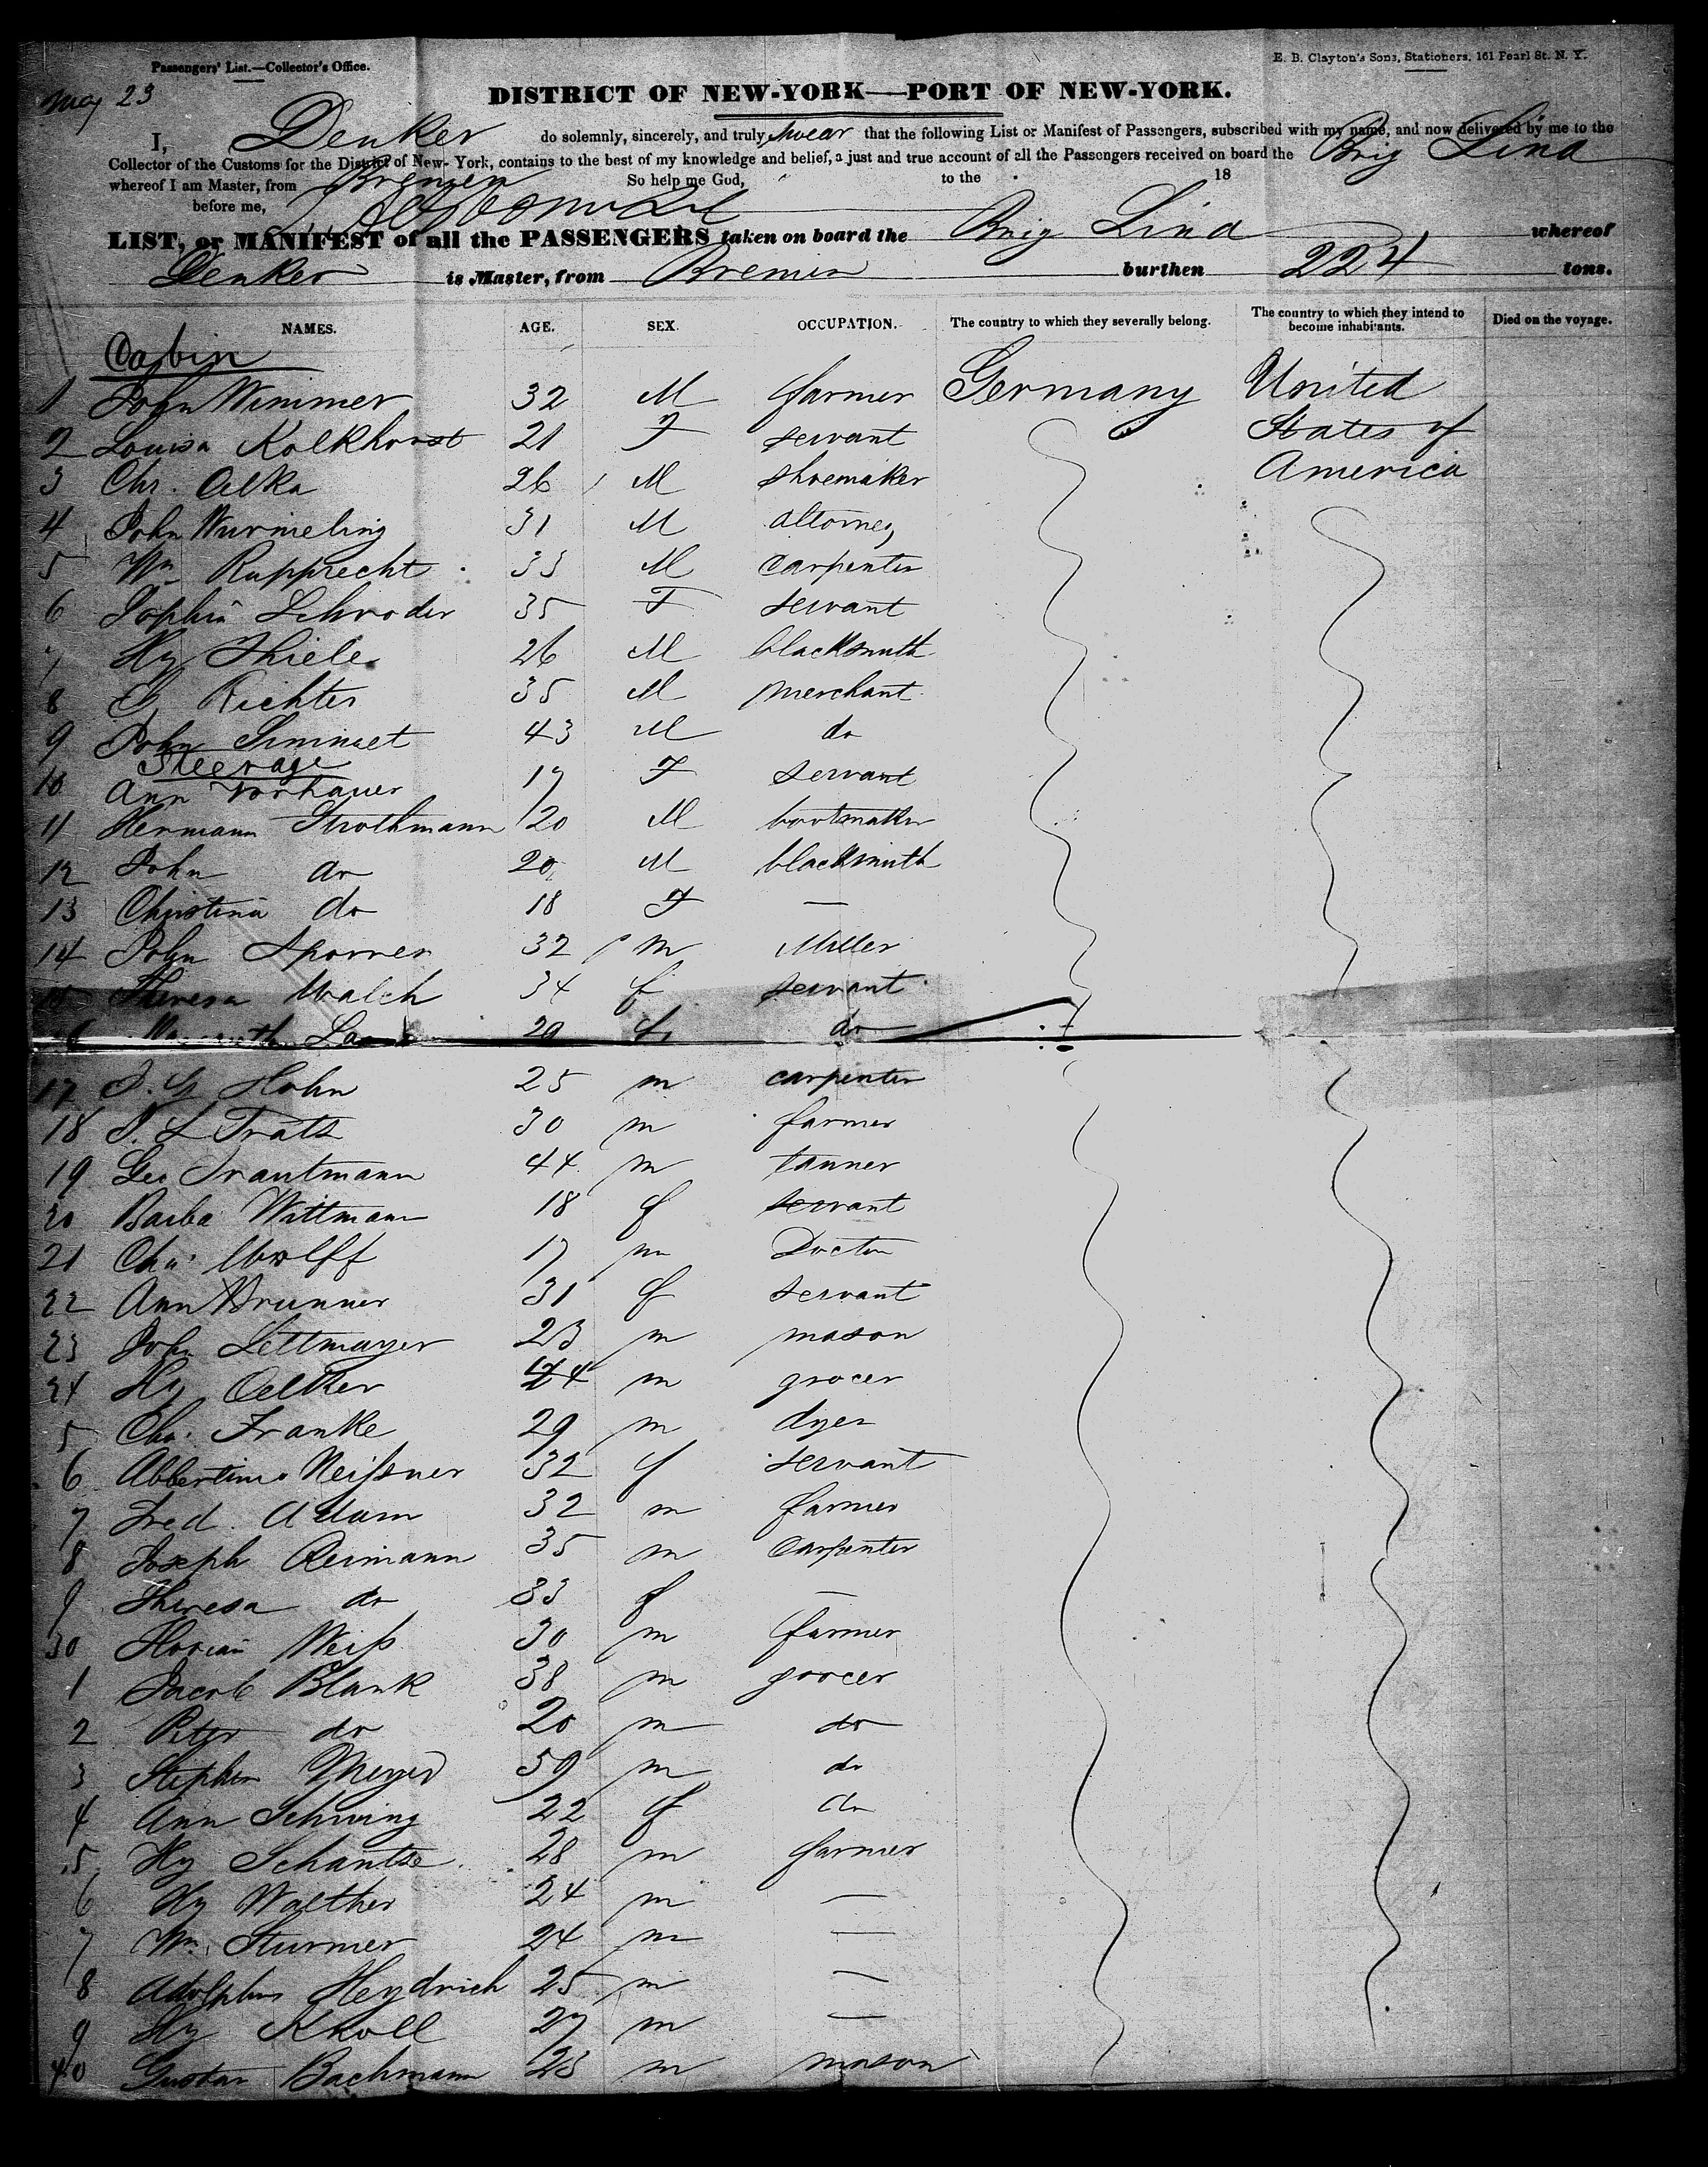 Passengers' List.—Collector's Office.
E. B. Clayton's Sons, Stationers, 161 Pearl St. N. Y.
May 23
DISTRICT OF NEW-YORK—PORT OF NEW-YORK.
I, Denker do solemnly, sincerely, and truly swear that the following List or Manifest of Passengers, subscribed with my name, and now delivered by me to the
Collector of the Customs for the District of New-York, contains to the best of my knowledge and belief, a just and true account of all the Passengers received on board the Brig Lina
whereof I am Master, from Bremen So help me God, to the 18
before me,
LIST, or MANIFEST of all the PASSENGERS taken on board the Brig Lina whereof
Denker is Master, from Bremen burthen 224 tons.
NAMES. AGE. SEX. OCCUPATION. The country to which they severally belong. The country to which they intend to become inhabitants. Died on the voyage.
Cabin
1 John Wimmer 32 M farmer Germany United
2 Louisa Kolkhorst 21 F servant States of
3 Chr. Oelka 26 M shoemaker America
4 John Wurmeling 31 M attorney
5 Wm Rupprecht 33 M carpenter
6 Sophia Schroder 35 F servant
7 Hy Thiele 26 M blacksmith
8 Richter 35 M merchant
9 John 43 M do
Steerage
10 Ann Vorhauer 17 F servant
11 Hermann Strothmann 20 M bootmaker
12 John do 20 M blacksmith
13 Christina do 18 F —
14 John 32 m Miller
15 Theresa Walch 34 f servant
29 f do
17 J. G Hohn 25 m carpenter
18 J. L Tratz 30 m farmer
19 Geo Trautmann 44 m tanner
20 Barba Wittmann 18 f servant
21 Chs. Wolff 17 m Doctor
22 Ann Brunner 31 f servant
23 John Lettmayer 23 m mason
24 Hy Oelther m grocer
5 Chs. Franke 29 m dyer
6 Albertine Neißner 32 f servant
7 Fred. Adam 32 m farmer
8 Joseph Reimann 35 m carpenter
9 Theresa do 33 f —
30 Florian Weiß 30 m farmer
1 Jacob Blank 38 m grocer
2 Peter do 20 m do
3 Stephen Meyer 59 m do
4 Ann Schwing 22 f do
5 Hy Schantze 28 m farmer
6 Hy Walther 24 m —
7 Wm. Sturmer 24 m —
8 Adolphus Heydrich 25 m —
9 Hy Kroll 27 m —
40 Gustav Bachmann 23 m mason